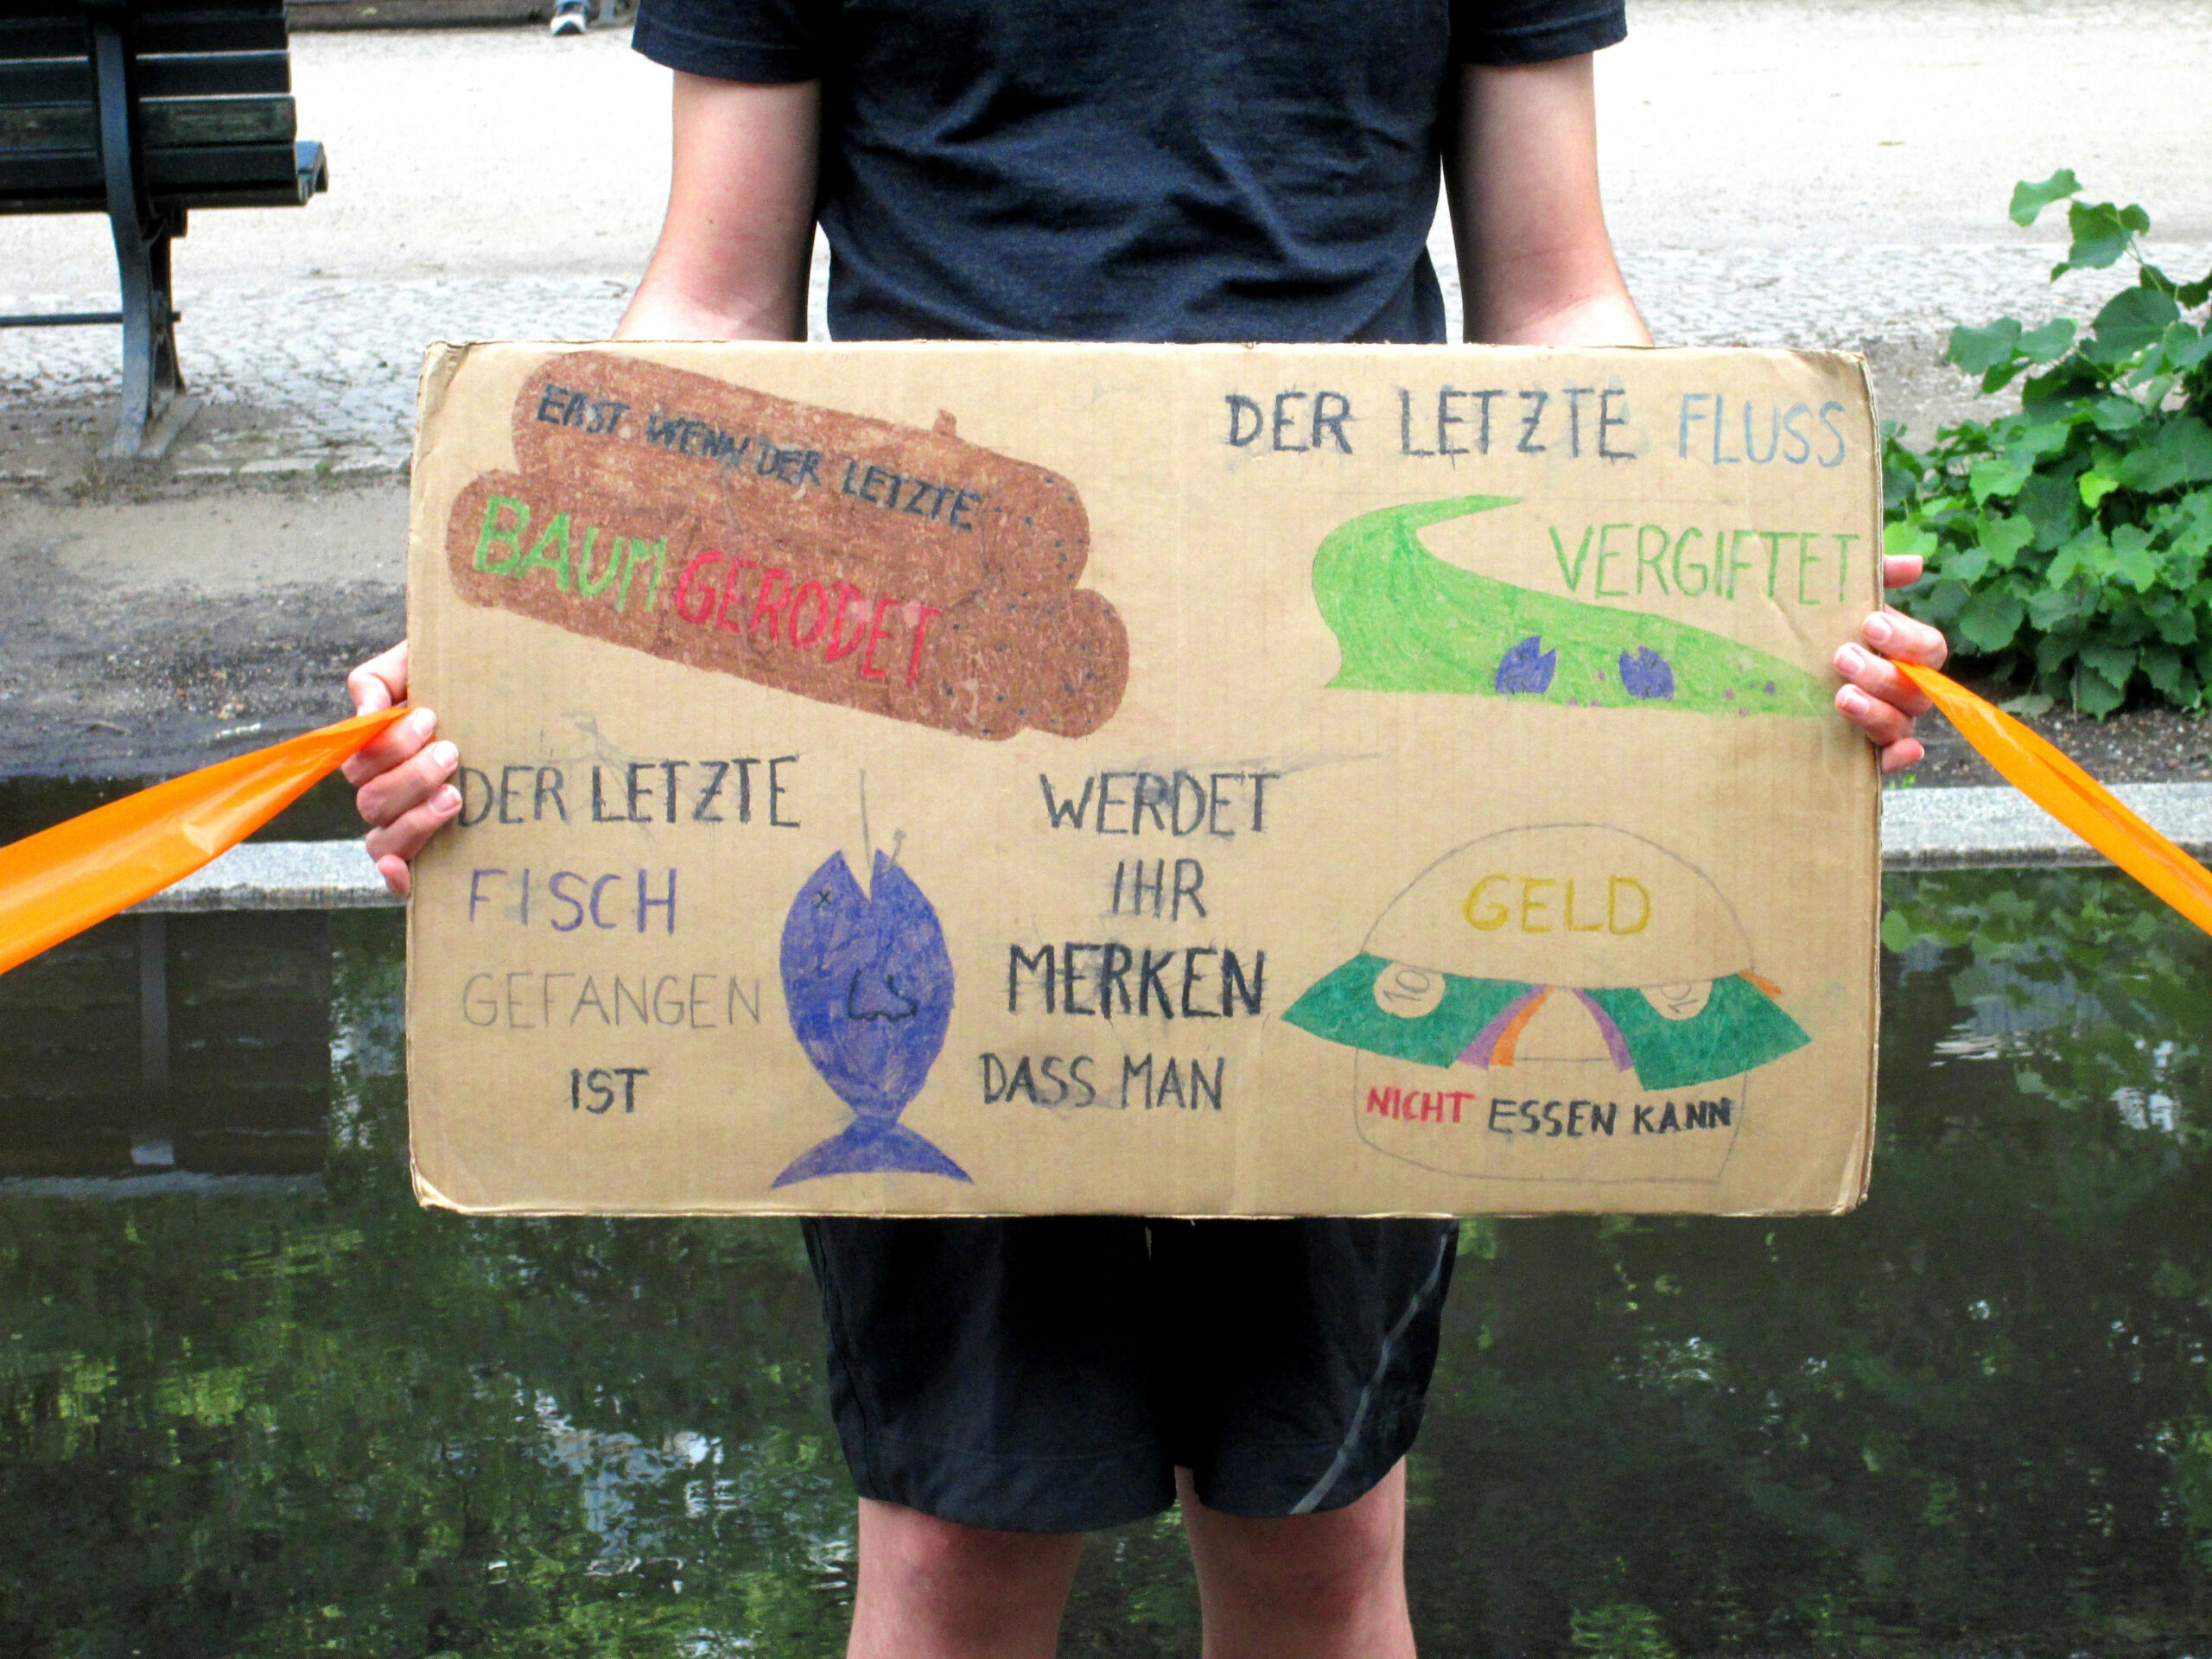 ERST WENN DER LETZTE
BAUM GERODET
DER LETZTE FLUSS
VERGIFTET
DER LETZTE
FISCH
GEFANGEN
IST
WERDET
IHR
MERKEN
DASS MAN
GELD
10
10
NICHT ESSEN KANN